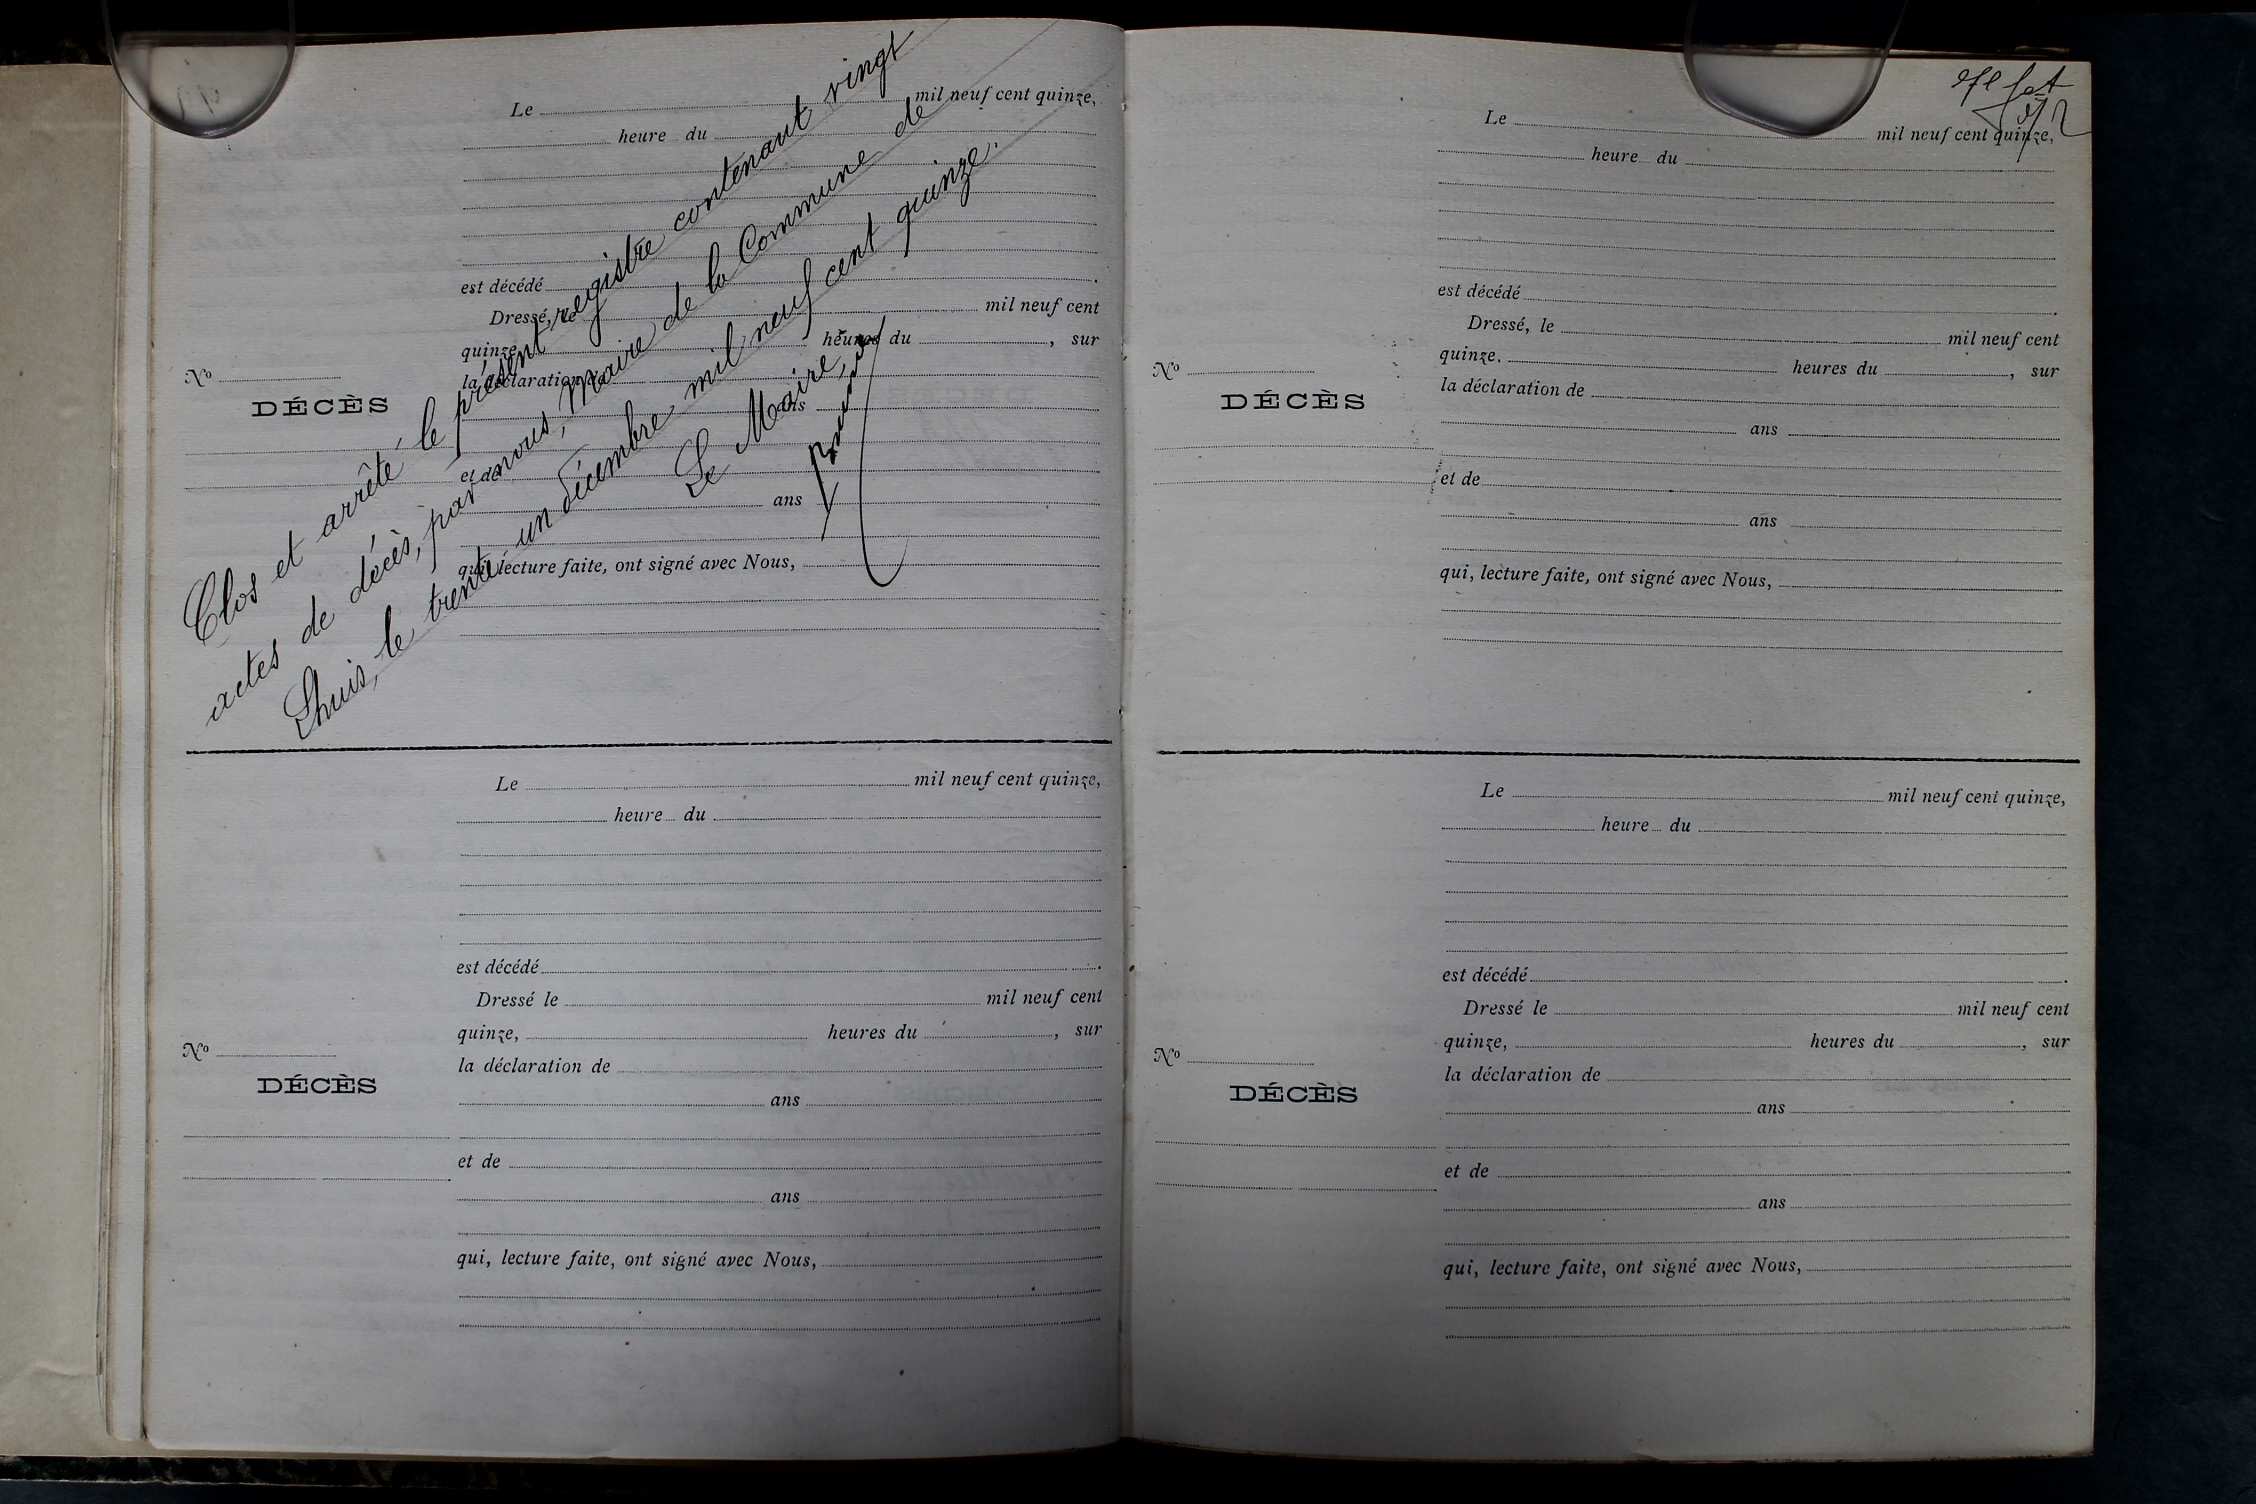 Clos et arrêté le présent registre contenant vingt
actes de décès, par nous, Maire de la Commune de
Lhuis, le trente un décembre mil neuf cent quinze.
Le Maire,
Le mil neuf cent quinze,
heure du
est décédé
Dressé, le mil neuf cent
quinze, heures du , sur
Nº
la déclaration de
DÉCÈS
ans
et de
ans
qui, lecture faite, ont signé avec Nous,
Le mil neuf cent quinze,
heure du
est décédé
Dressé le mil neuf cent
quinze, heures du , sur
Nº
la déclaration de
DÉCÈS
ans
et de
ans
qui, lecture faite, ont signé avec Nous,
Le mil neuf cent quinze,
heure du
est décédé
Dressé, le mil neuf cent
quinze. heures du , sur
Nº
la déclaration de
DÉCÈS
ans
et de
ans
qui, lecture faite, ont signé avec Nous,
Le mil neuf cent quinze,
heure du
est décédé
Dressé le mil neuf cent
quinze, heures du , sur
Nº
la déclaration de
DÉCÈS
ans
et de
ans
qui, lecture faite, ont signé avec Nous,